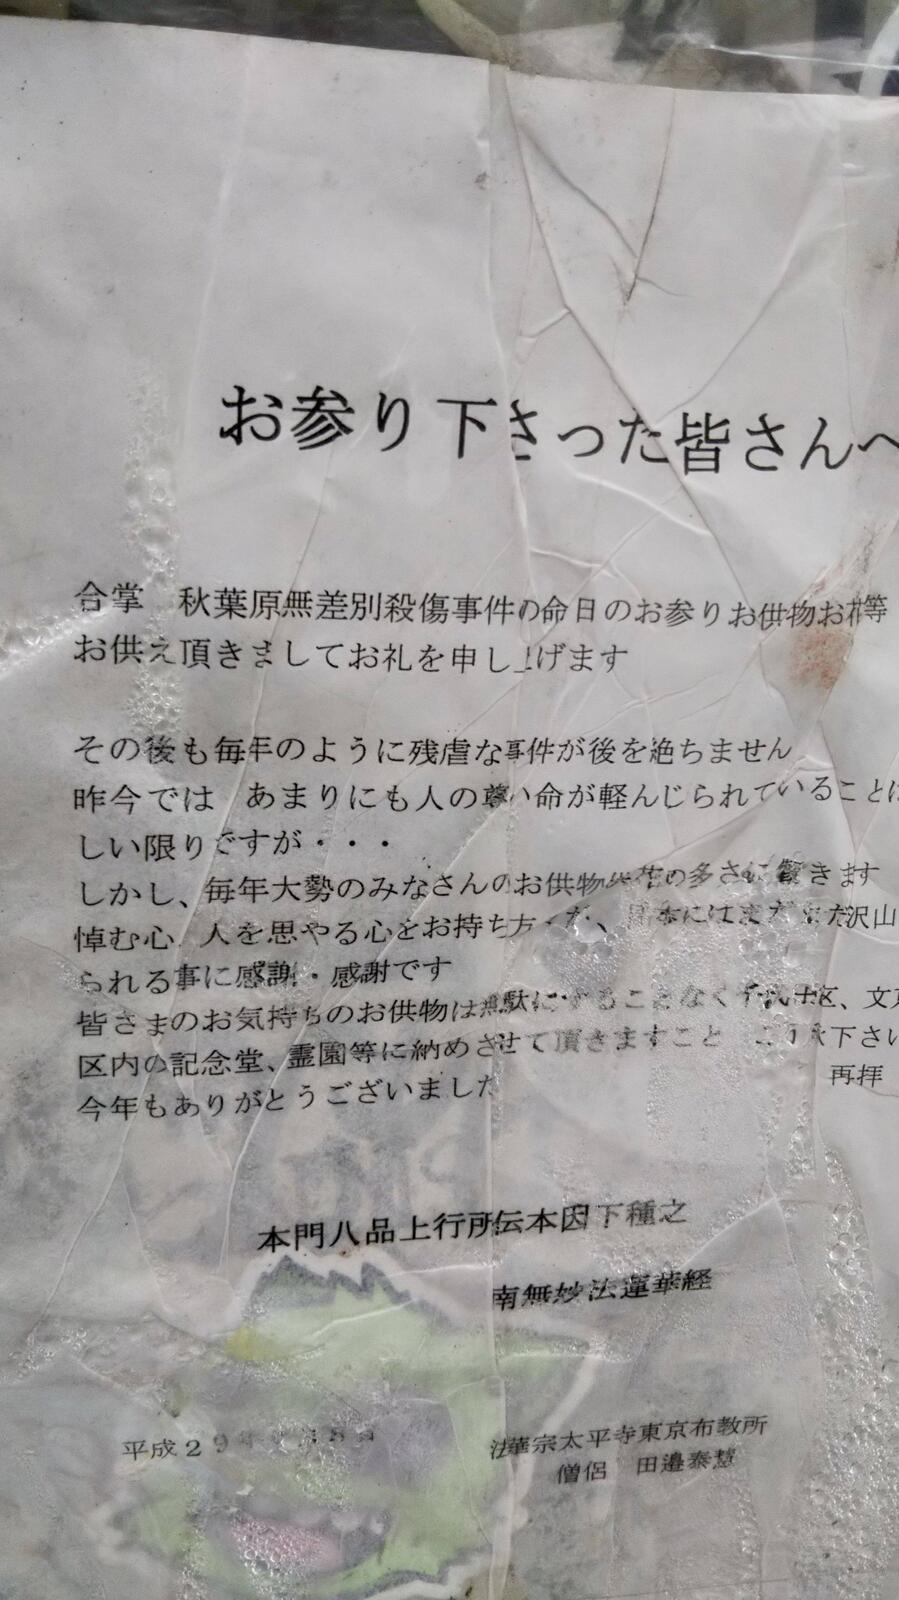 お参り下さった皆さんへ
合掌　秋葉原無差別殺傷事件の命日のお参りお供物お花等
お供え頂きましてお礼を申し上げます
その後も毎年のように残虐な事件が後を絶ちません
昨今では　あまりにも人の尊い命が軽んじられていることは
しい限りですが・・・
しかし、毎年大勢のみなさんのお供物 の多さに驚きます
悼む心、人を思やる心をお持ち方 が、日本にはまだまだ沢山
られる事に感謝・感謝です
皆さまのお気持ちのお供物は無駄にすることなく千代田区、文京
区内の記念堂、霊園等に納めさせて頂きますこと　ご了承下さい
再拝
今年もありがとうございました
本門八品上行所伝本因下種之
南無妙法蓮華経
平成29年 8日
法華宗太平寺東京布教所
僧侶　田邉泰慧